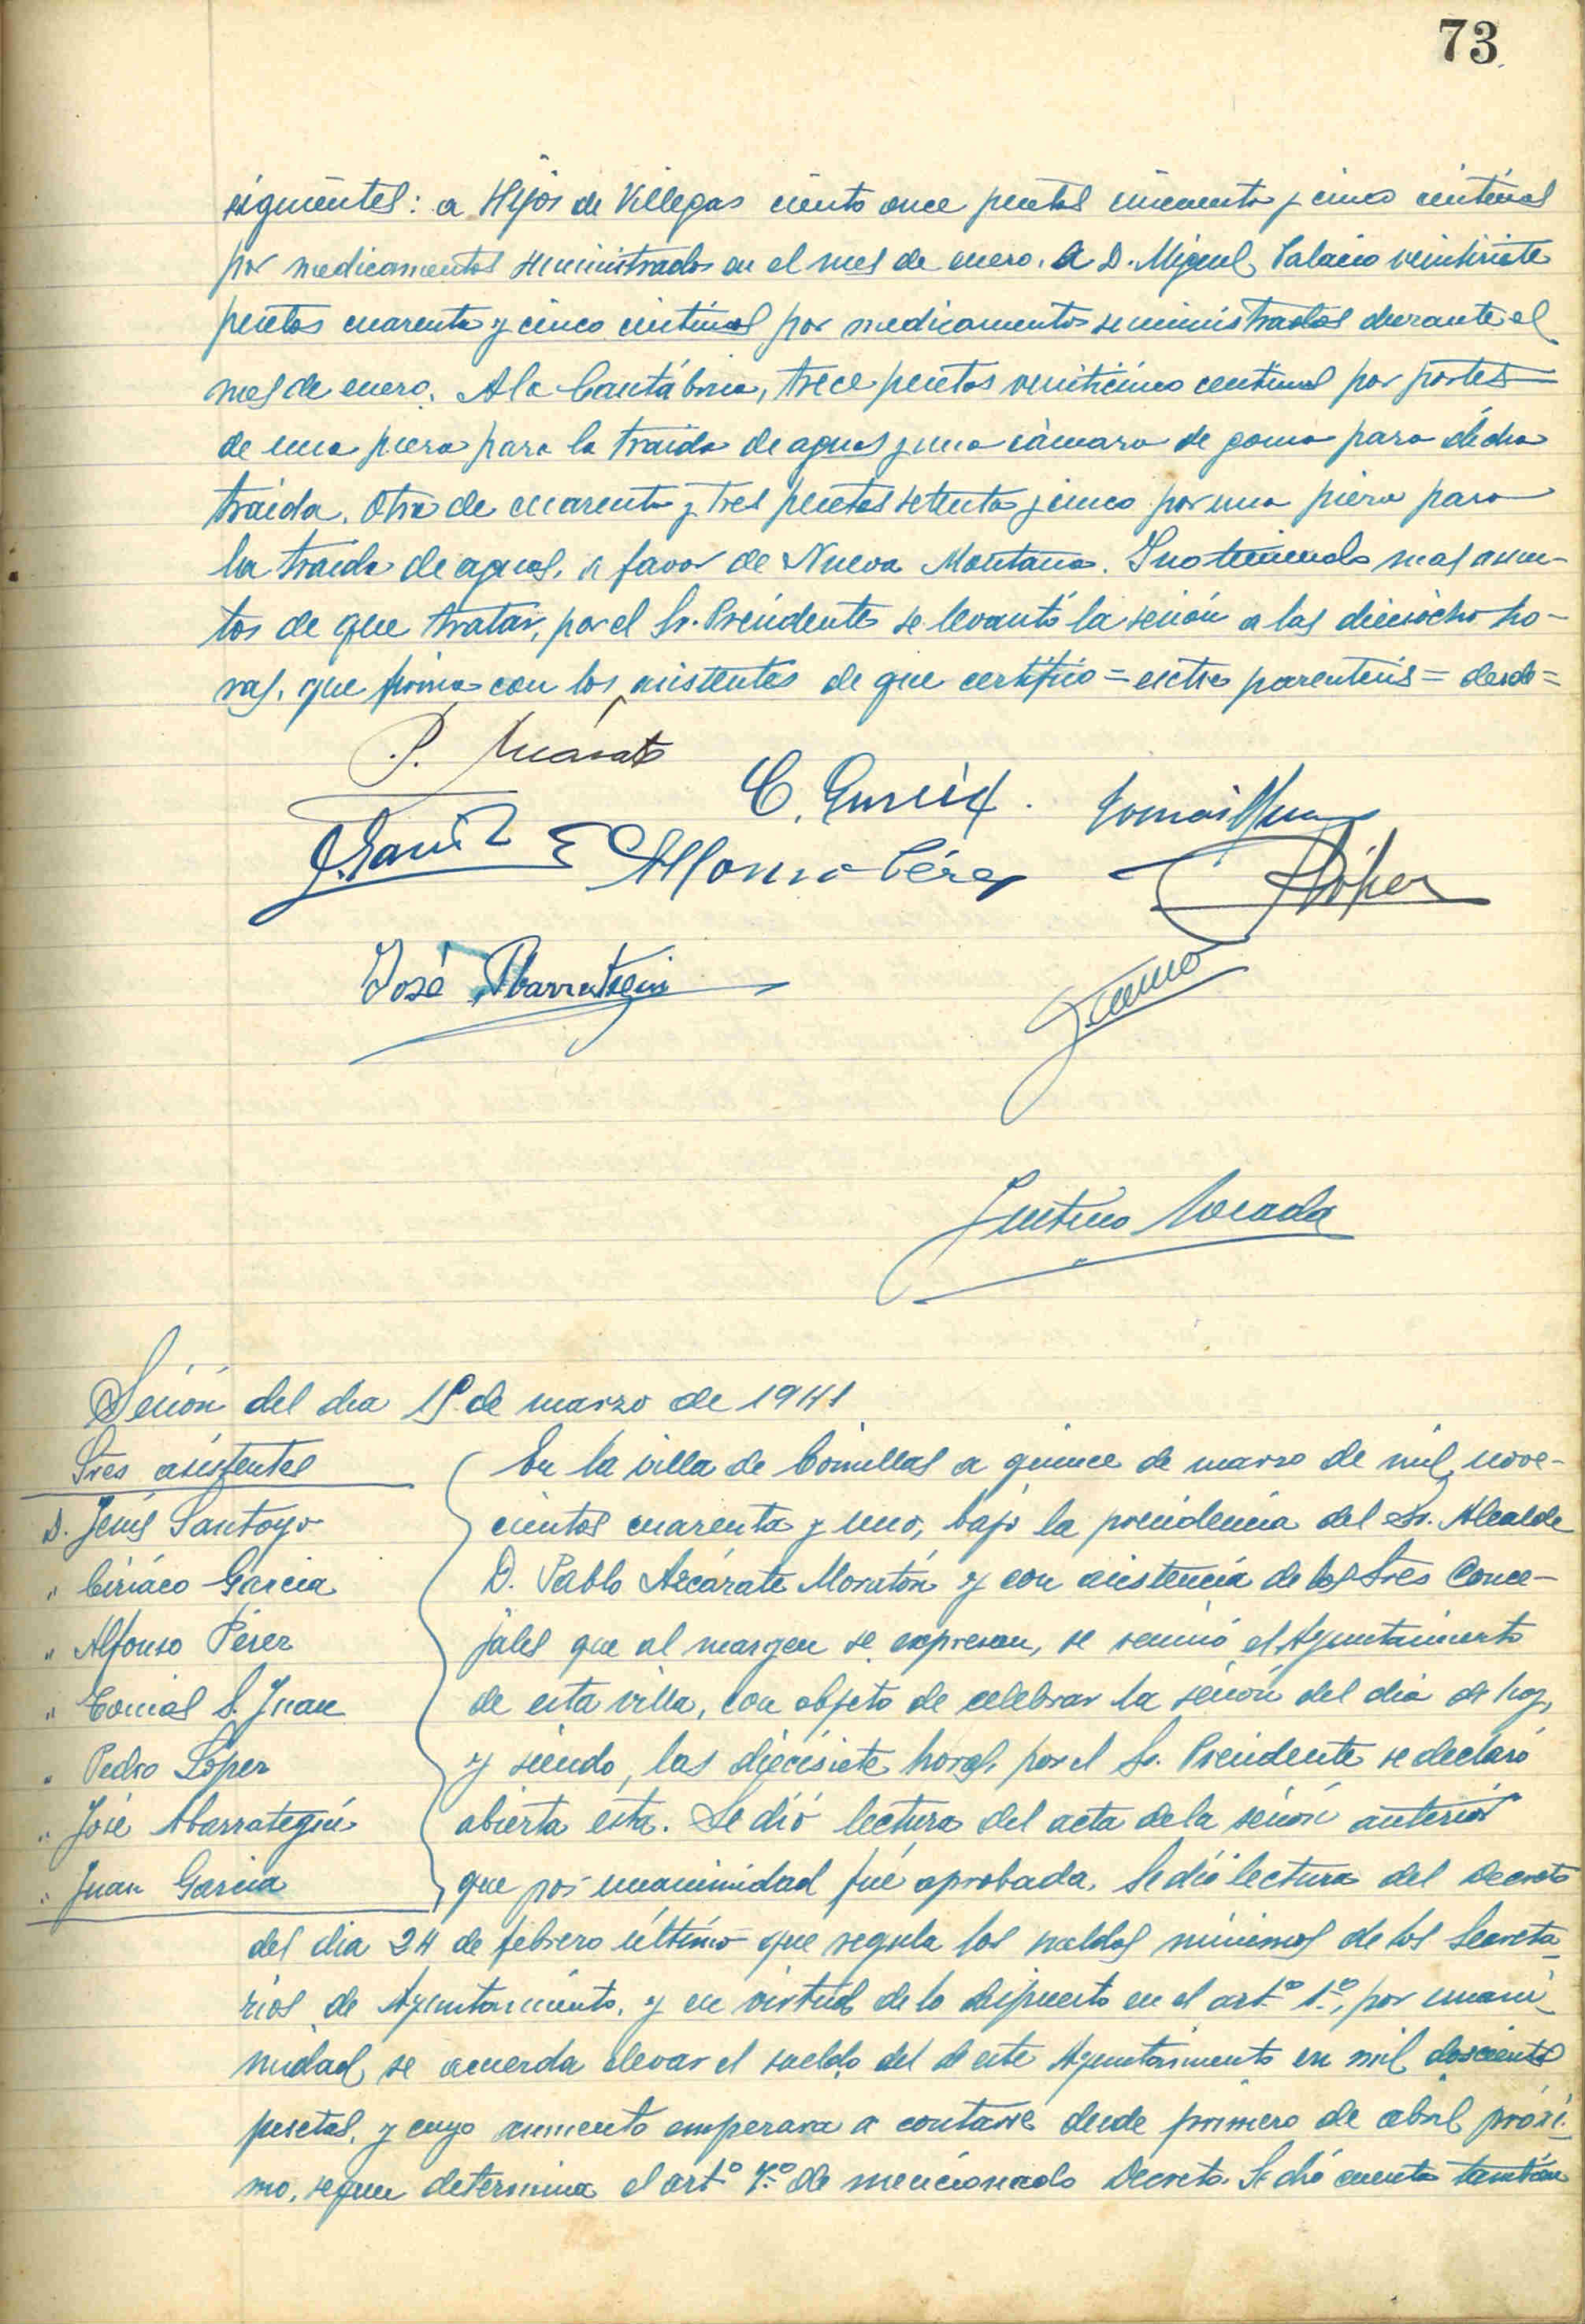 73
siguientes: a Hijos de Villegas ciento once pesetas cincuenta y cinco centimos
por medicamentos suministrados en el mes de enero. A D. Miguel Palacio veintisiete
pesetas cuarenta y cinco centimos por medicamentos suministrados durante el
mes de enero. A la Cantábrica, trece pesetas veinticinco centimos por portes
de una pieza para la traida de aguas y una cámara de goma para dicha
traida. Otra de cuarenta y tres pesetas setenta y cinco por una pieza para
la traida de aguas, a favor de Nueva Montaña. Y no teniendo mas asun-
tos de que tratar, por el Sr. Presidente se levantó la sesión a las dieciocho ho-
ras, que firma con los asistentes de que certifico = entre parentesis = desde =
P. Azcárate
C. García. Tomás S. Juan
J. García Alfonso Pérez P. López
José Abarrategui
Justino Morada
Sesión del dia 15 de marzo de 1941
Sres asistentes
D. Jesús Santoyo
" Ciriáco García
" Alfonso Pérez
" Tomás S. Juan
" Pedro López
" José Abarrategui
" Juan García
En la villa de Comillas a quince de marzo de mil nove-
cientos cuarenta y uno, bajo la presidencia del Sr. Alcalde
D. Pablo Azcárate Morutón y con asistencia de los Sres Conce-
jales que al margen se expresan, se reunió el Ayuntamiento
de esta villa, con objeto de celebrar la sesión del dia de hoy,
y siendo, las diecisiete horas, por el Sr. Presidente se declaró
abierta esta. Se dió lectura del acta de la sesión anterior
que por unanimidad fué aprobada. Se dió lectura del Decreto
del dia 24 de febrero último que regula los sueldos mínimos de los Secreta-
rios de Ayuntamiento, y en virtud de lo dispuesto en el art.º 1.º, por unani-
midad se acuerda elevar el sueldo del de este Ayuntamiento en mil doscientas
pesetas, y cuyo aumento empezara a contarse desde primero de abril próxi-
mo, segun determina el art.º 7.º de mencionado Decreto. Se dió cuenta también